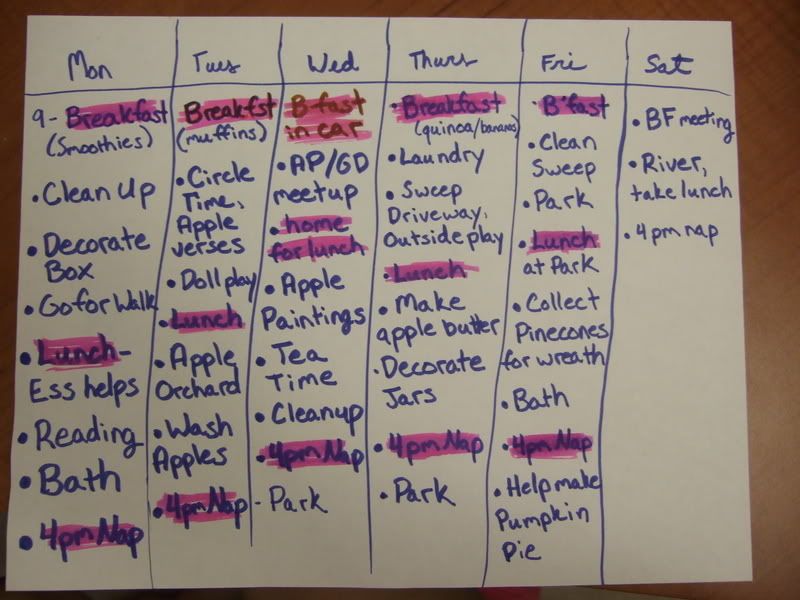 Mon
9- Breakfast
(Smoothies)
• Clean Up
• Decorate
Box
• Go for Walk
• Lunch -
Ess helps
• Reading
• Bath
• 4pm Nap
Tues
Breakfst
(muffins)
• Circle
Time,
Apple
verses
• Doll play
• Lunch
• Apple
Orchard
• Wash
Apples
• 4pm Nap
Wed
B-fast
in car
• AP/GD
meetup
• home
for lunch
• Apple
Paintings
• Tea
Time
• Cleanup
• 4pm Nap
- Park
Thurs
• Breakfast
(quinoa/bananas)
• Laundry
• Sweep
Driveway,
Outside play
• Lunch
• Make
apple butter
• Decorate
Jars
• 4pm Nap
• Park
Fri
• B'fast
• Clean
Sweep
• Park
• Lunch
at Park
• Collect
Pinecones
for wreath
• Bath
• 4pm Nap
• Help make
Pumpkin
Pie
Sat
• BF meeting
• River,
take lunch
• 4pm nap